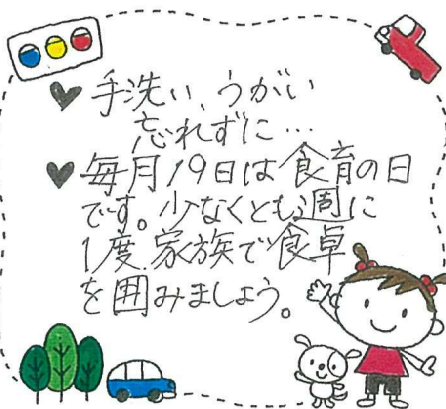 ♥ 手洗い、うがい
忘れずに…
♥ 毎月19日は食育の日
です。少なくとも週に
1度家族で食卓
を囲みましょう。